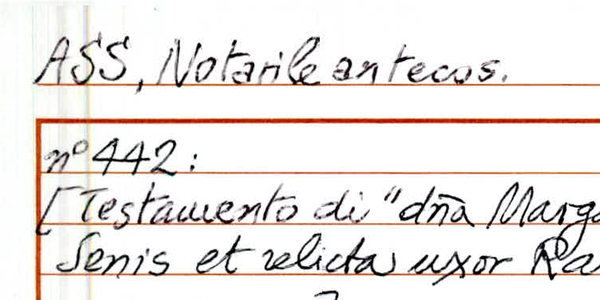 ASS, Notarile antecos.
nº 442:
[Testamento di "dña Marga
Senis et relicta uxor Ra